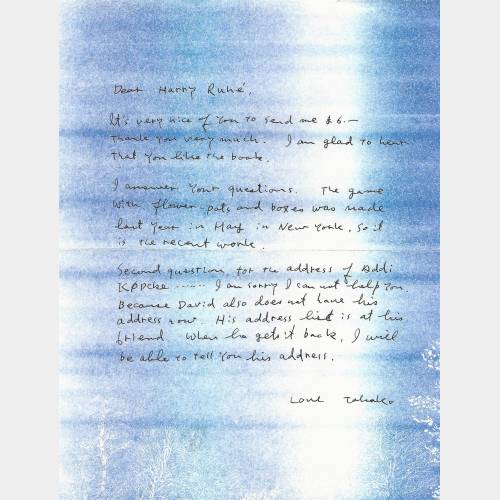 Dear Harry Ruhé,
It's very nice of you to send me $6.—
Thank you very much. I am glad to hear
that you like the book.
I answer your questions. The game
with flower-pots and boxes was made
last year in May in New York. So it
is the recent work.
Second question, for the address of Addi
Køpcke ...... I am sorry I can not help you.
Because David also does not have his
address now. His address list is at his
friend. When he gets it back, I will
be able to tell you his address.
Love Takako